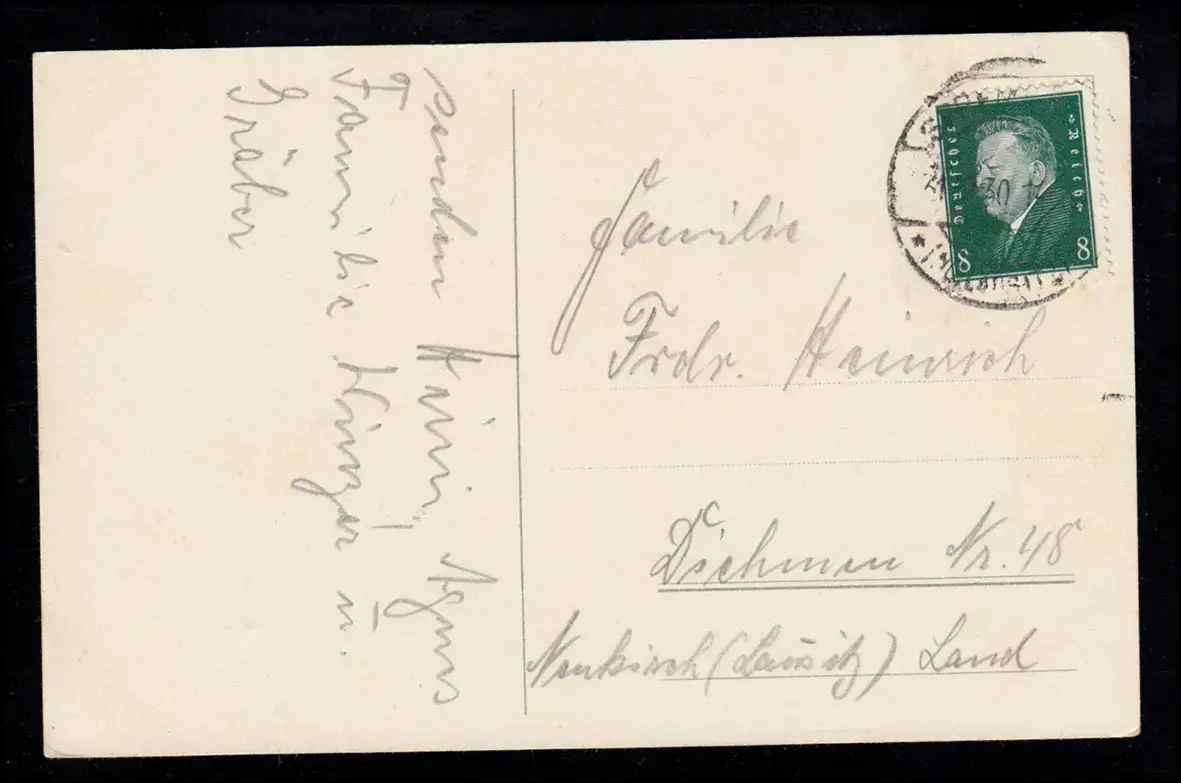 senden Heini, Agnes
Familie Winzer u.
Gräber
Deutsches Reich
8 8
30
Familie
Frdr. Heinrich
Nr. 48
Neukirch (Lausitz) Land